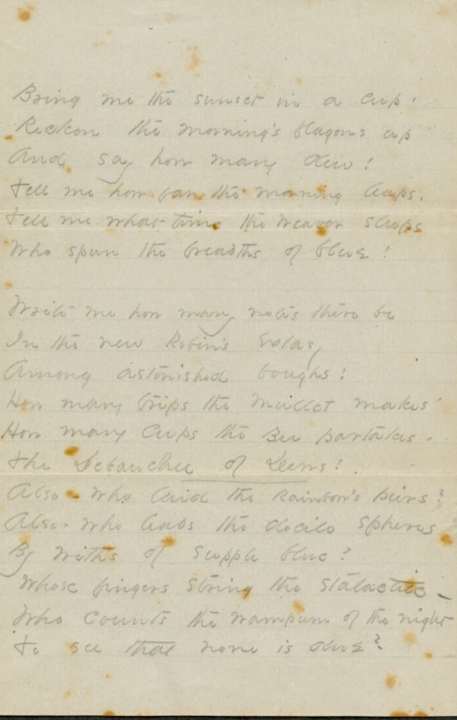 Bring me the sunset in a cup!
Reckon the morning's flagons up
And say how many Dew!
Tell me how far the morning leaps.
Tell me what time the weaver sleeps
Who spun the breadths of blue!
Write me how many notes there be
In the new Robin's Extasy
Among astonished boughs!
How many trips the
How many Cups the Bee partakes.
The Debauchee of Dews!
Also - Who laid the Rainbow's piers!
Also - Who leads the docile spheres
By withs of supple blue?
Whose fingers string the stalactite -
Who counts the wampum of the night
To see that none is due?